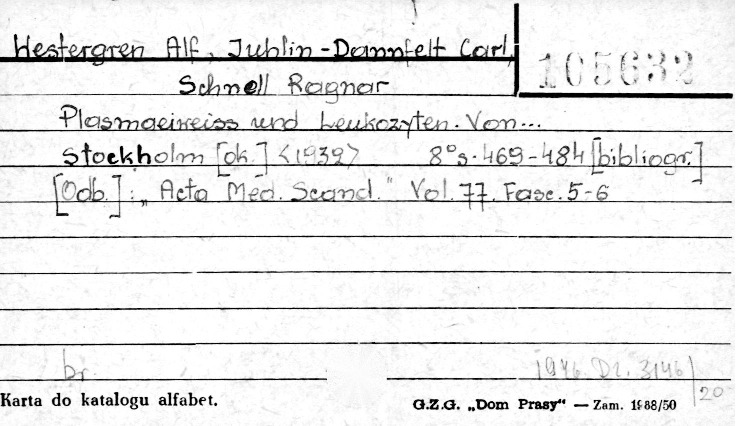 Westergren Alf, Juhlin-Dannfelt Carl,
Schnell Ragnar
105632
Plasmaeiweiss und Leukozyten. Von...
Stockholm [ok.] <1932> 8°s. 469-484 [bibliogr.]
[Odb.]: „Acta Med. Scand." Vol. 77. Fasc. 5-6
br.
1946. Dz. 3146/
20
Karta do katalogu alfabet.
G.Z.G. „Dom Prasy“ — Zam. 1888/50